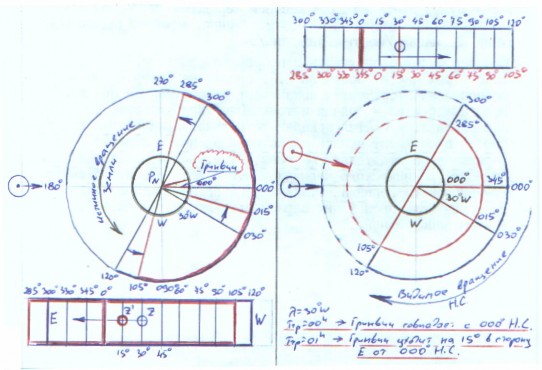 270° 285° 300°
E
Гринвич
P_N
000°
000°
015°
030°
30°W
W
120° 105° 090° 60° 75°
180°
истинное вращение Земли
285° 300° 330° 345° 0° 60° 75° 90° 105° 120°
E Z' Z W
15° 30° 45°
300° 330° 345° 0° 15° 30° 45° 60° 75° 90° 105° 120°
285° 300° 330° 345° 0 15° 30° 45° 60° 75° 90° 105°
300°
285°
E
000° 345° 000°
30°W
015°
W
030°
105°
120°
Видимое вращение
Н.С.
λ = 30°W
Tгр=00ʰ → Гринвич совпадает с 000° Н.С.
Tгр=01ʰ → Гринвич уходит на 15° в сторону
E от 000° Н.С.